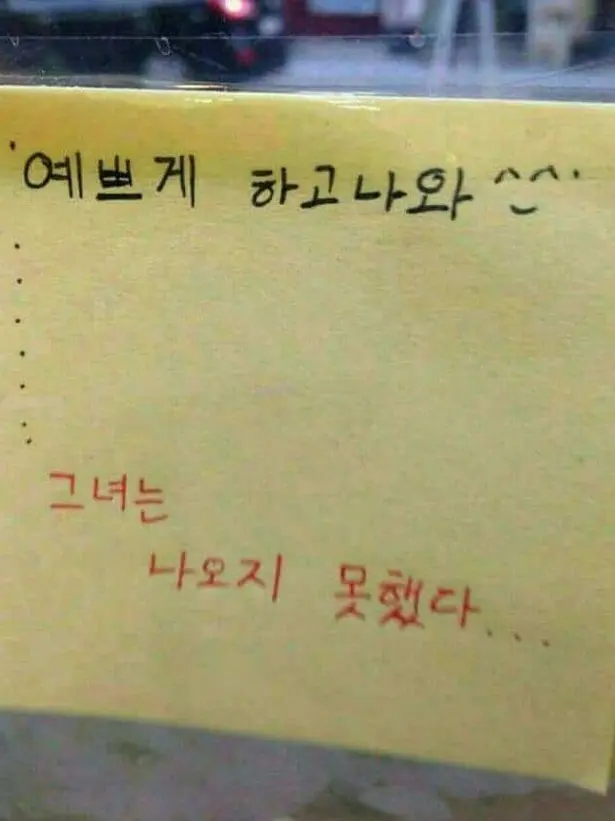 '예쁘게 하고나와 ^~^'
.
.
.
.
.
.
그녀는
나오지 못했다...